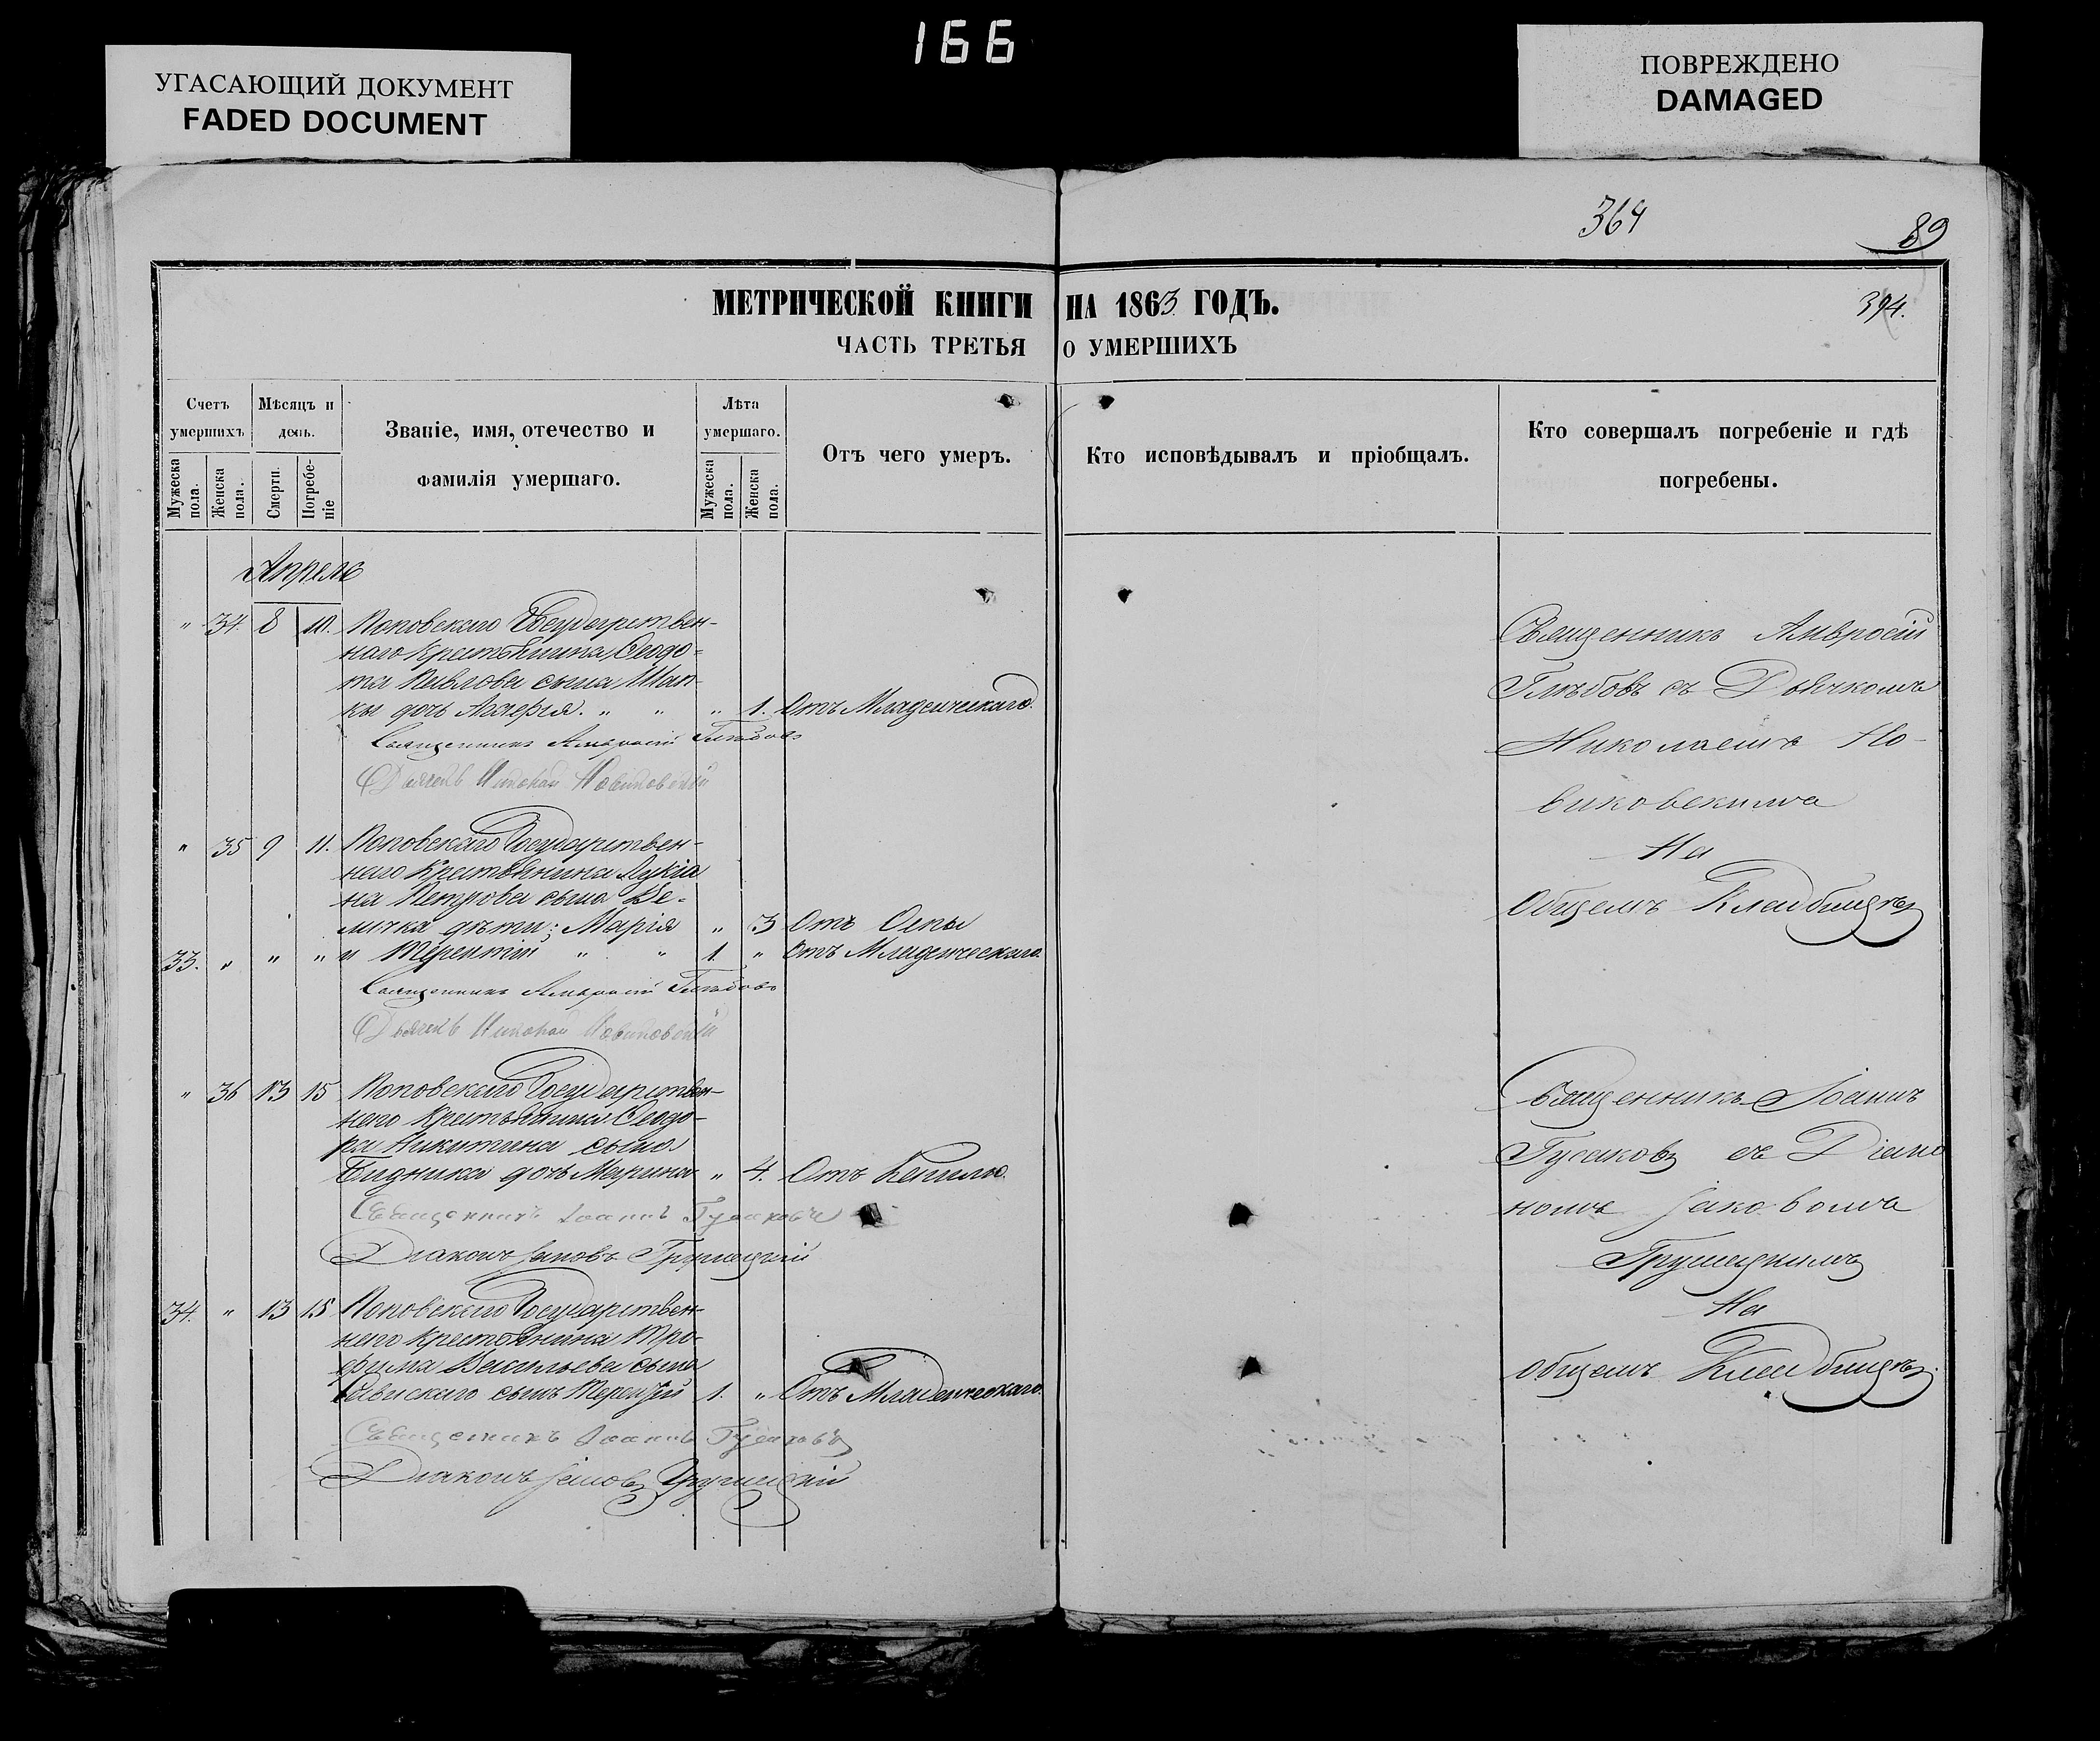 166
УГАСАЮЩИЙ ДОКУМЕНТ
FADED DOCUMENT
ПОВРЕЖДЕНО
DAMAGED
364
89
394.
МЕТРИЧЕСКОЙ КНИГИ НА 1863 ГОДЪ.
ЧАСТЬ ТРЕТЬЯ О УМЕРШИХЪ
Счетъ умершихъ
Мужеска пола.
Женска пола.
Мѣсяцъ и день.
Смерти.
Погребеніе
Званіе, имя, отечество и фамилія умершаго.
Лѣта умершаго.
Мужеска пола.
Женска пола.
Отъ чего умеръ.
Кто исповѣдывалъ и пріобщалъ.
Кто совершалъ погребеніе и гдѣ погребены.
Апрель
" 34. 8 10. Поповскаго Государствен-
наго Крестьянина Ѳеодо-
та Павлова сына
кы дочь " " " 1. Отъ Младенческаго.
Священникъ Амвросій Глѣбовъ
Дьячекъ Николай Новиковскій
Священникъ Амвросій
Глѣбовъ съ Дьячкомъ
Николаемъ Но-
виковскимъ
На
Общемъ Кладбищѣ
" 35 9 11. Поповскаго Государствен-
наго Крестьянина Лукіа
на Петрова сына Ве-
лычка дѣти; Марія " 3 Отъ Оспы
33. " " " и Терентій " " 1. " Отъ Младенческаго.
Священникъ Амвросій Глѣбовъ
Дьячекъ Николай Новиковскій
" 36 13 15 Поповскаго Государствен-
наго Крестьянина Ѳеодо-
ра Никитина сына
Бидника дочь Марина " 4. Отъ Кашлю.
Священникъ Іоаннъ Гусаковъ
Діаконъ Іаковъ Грушецкій
Священникъ Іоаннъ
Гусаковъ съ Діако
номъ Іаковомъ
Грушецкимъ
На
общемъ Кладбищѣ.
34. " 13 15 Поповскаго Государствен-
наго Крестьянина Тро-
фима Васильева сына
сынъ Терентій 1. " Отъ Младенческаго.
Священникъ Іоаннъ Гусаковъ
Діаконъ Іаковъ Грушецкій